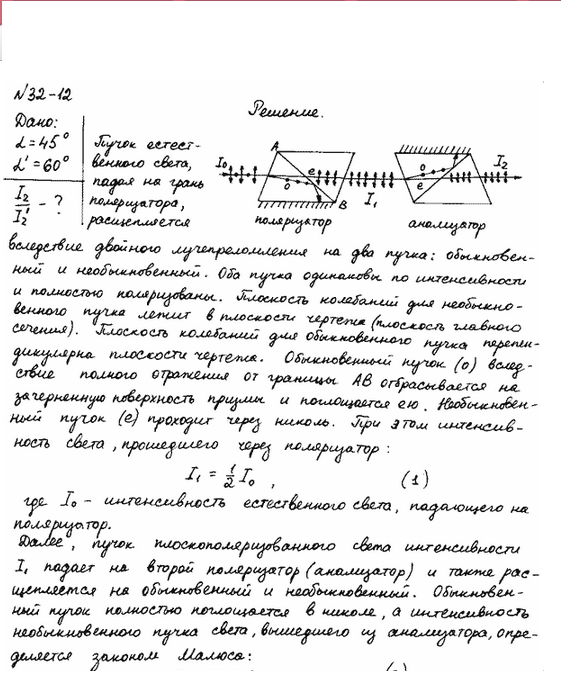 N32-12
Решение.
Дано:
α=45°
α'=60°
I₂/I₂' - ?
Пучок естест-
венного света,
падая на грань
поляризатора,
расщепляется
A
I₀
e
o
B
I₁
o
e
I₂
поляризатор
анализатор
вследствие двойного лучепреломления на два пучка: обыкновен-
ный и необыкновенный. Оба пучка одинаковы по интенсивности
и полностью поляризованы. Плоскость колебаний для необыкно-
венного пучка лежит в плоскости чертежа (плоскость главного
сечения). Плоскость колебаний для обыкновенного пучка перпен-
дикулярна плоскости чертежа. Обыкновенный пучок (o) вслед-
ствие полного отражения от границы AB отбрасывается на
зачерненную поверхность призмы и поглощается ею. Необыкновен-
ный пучок (e) проходит через николь. При этом интенсив-
ность света, прошедшего через поляризатор:
I₁ = 1/2 I₀ , (1)
где I₀ - интенсивность естественного света, падающего на
поляризатор.
Далее, пучок плоскополяризованного света интенсивности
I₁ падает на второй поляризатор (анализатор) и также рас-
щепляется на обыкновенный и необыкновенный. Обыкновен-
ный пучок полностью поглощается в николе, а интенсивность
необыкновенного пучка света, вышедшего из анализатора, опре-
деляется законом Малюса: